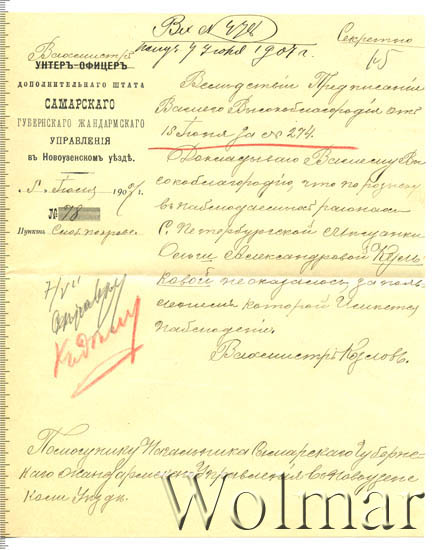 Вх № 478
Секретно
получ 7 Июля 1907 г.
Вахмистръ
УНТЕРЪ-ОФИЦЕРЪ
ДОПОЛНИТЕЛЬНАГО ШТАТА
САМАРСКАГО
ГУБЕРНСКАГО ЖАНДАРМСКАГО
УПРАВЛЕНІЯ
въ Новоузенскомъ уѣздѣ.
5 Іюля 1907 г.
№ 78
Пунктъ Слоб. Покровс
Вследствіи Предписанія
Вашего Высокоблагородія отъ
за № 274.
Докладываю Вашему Вы
сокоблагородію, что по розыску
в наблюдаемомъ районѣ
С. Петербургской
Ольги Александровой
ковой не оказалось, за
которой Имѣется
наблюденіе.
Вахмистръ Козловъ.
7/VII
Къ делу
Помощнику Начальника Самарскаго Губернс
каго Жандармскаго Управленія в Новоузенс
комъ Уездѣ.
Wolmar